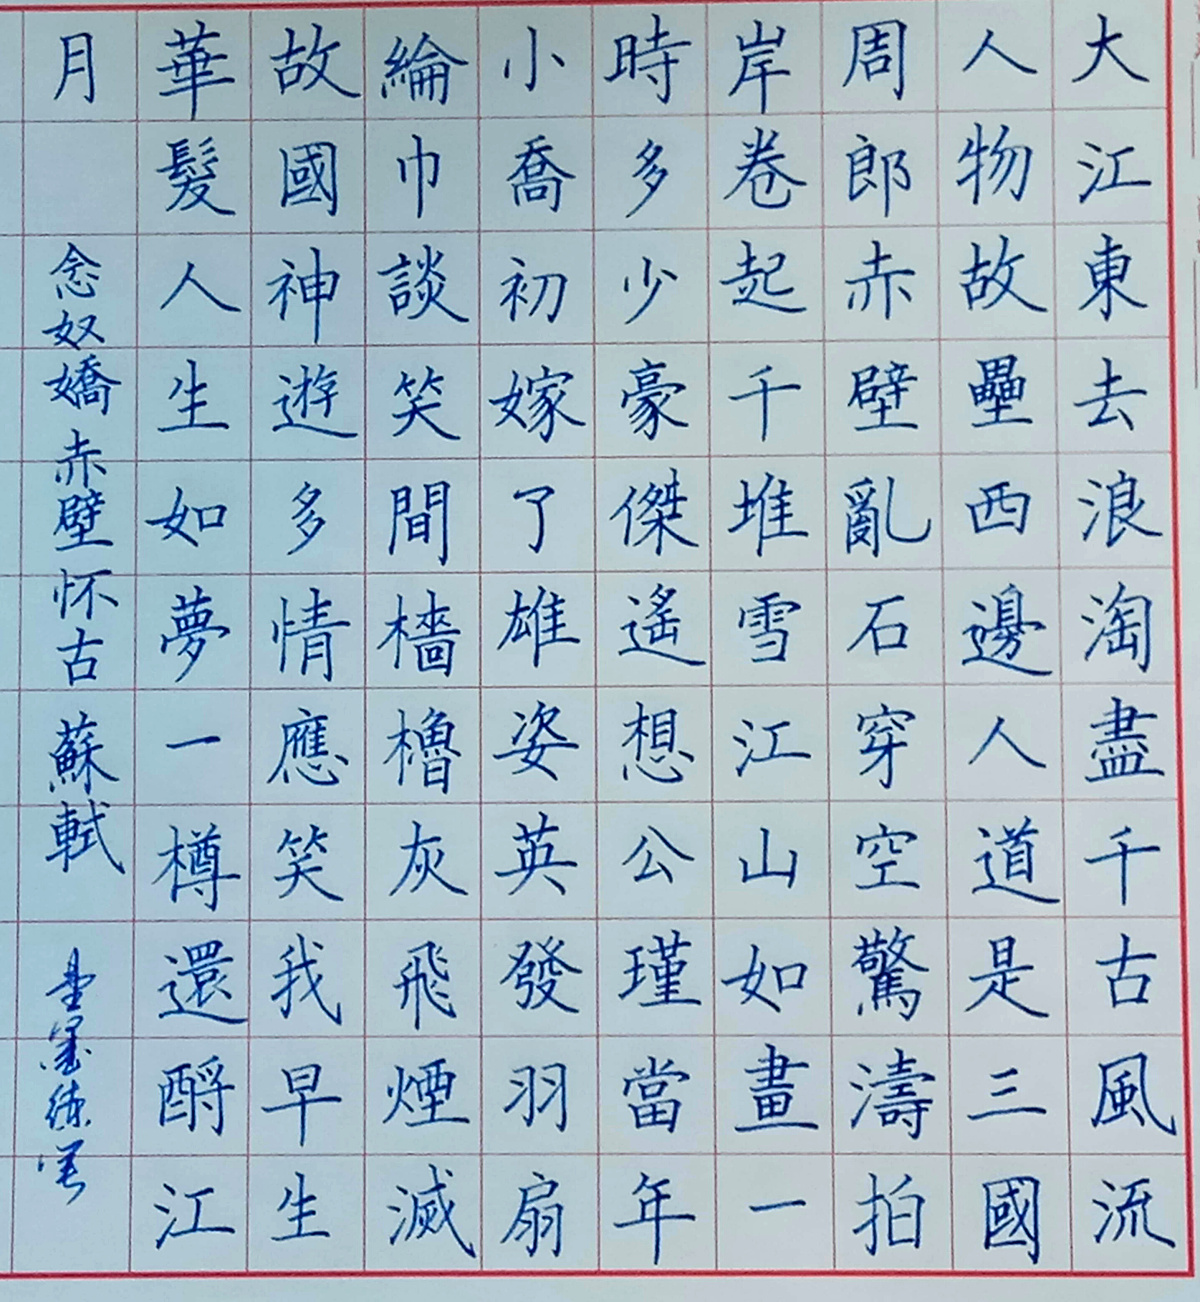 大江東去浪淘盡千古風流
人物故壘西邊人道是三國
周郎赤壁亂石穿空驚濤拍
岸卷起千堆雪江山如畫一
時多少豪傑遙想公瑾當年
小喬初嫁了雄姿英發羽扇
綸巾談笑間檣櫓灰飛煙滅
故國神遊多情應笑我早生
華髮人生如夢一樽還酹江
月
念奴嬌赤壁怀古 蘇軾
墨練寫